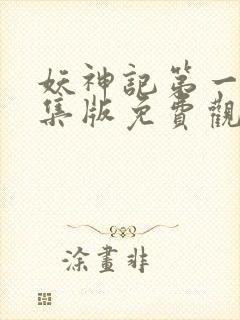 妖神記第一
集版免費觀
涂畫非